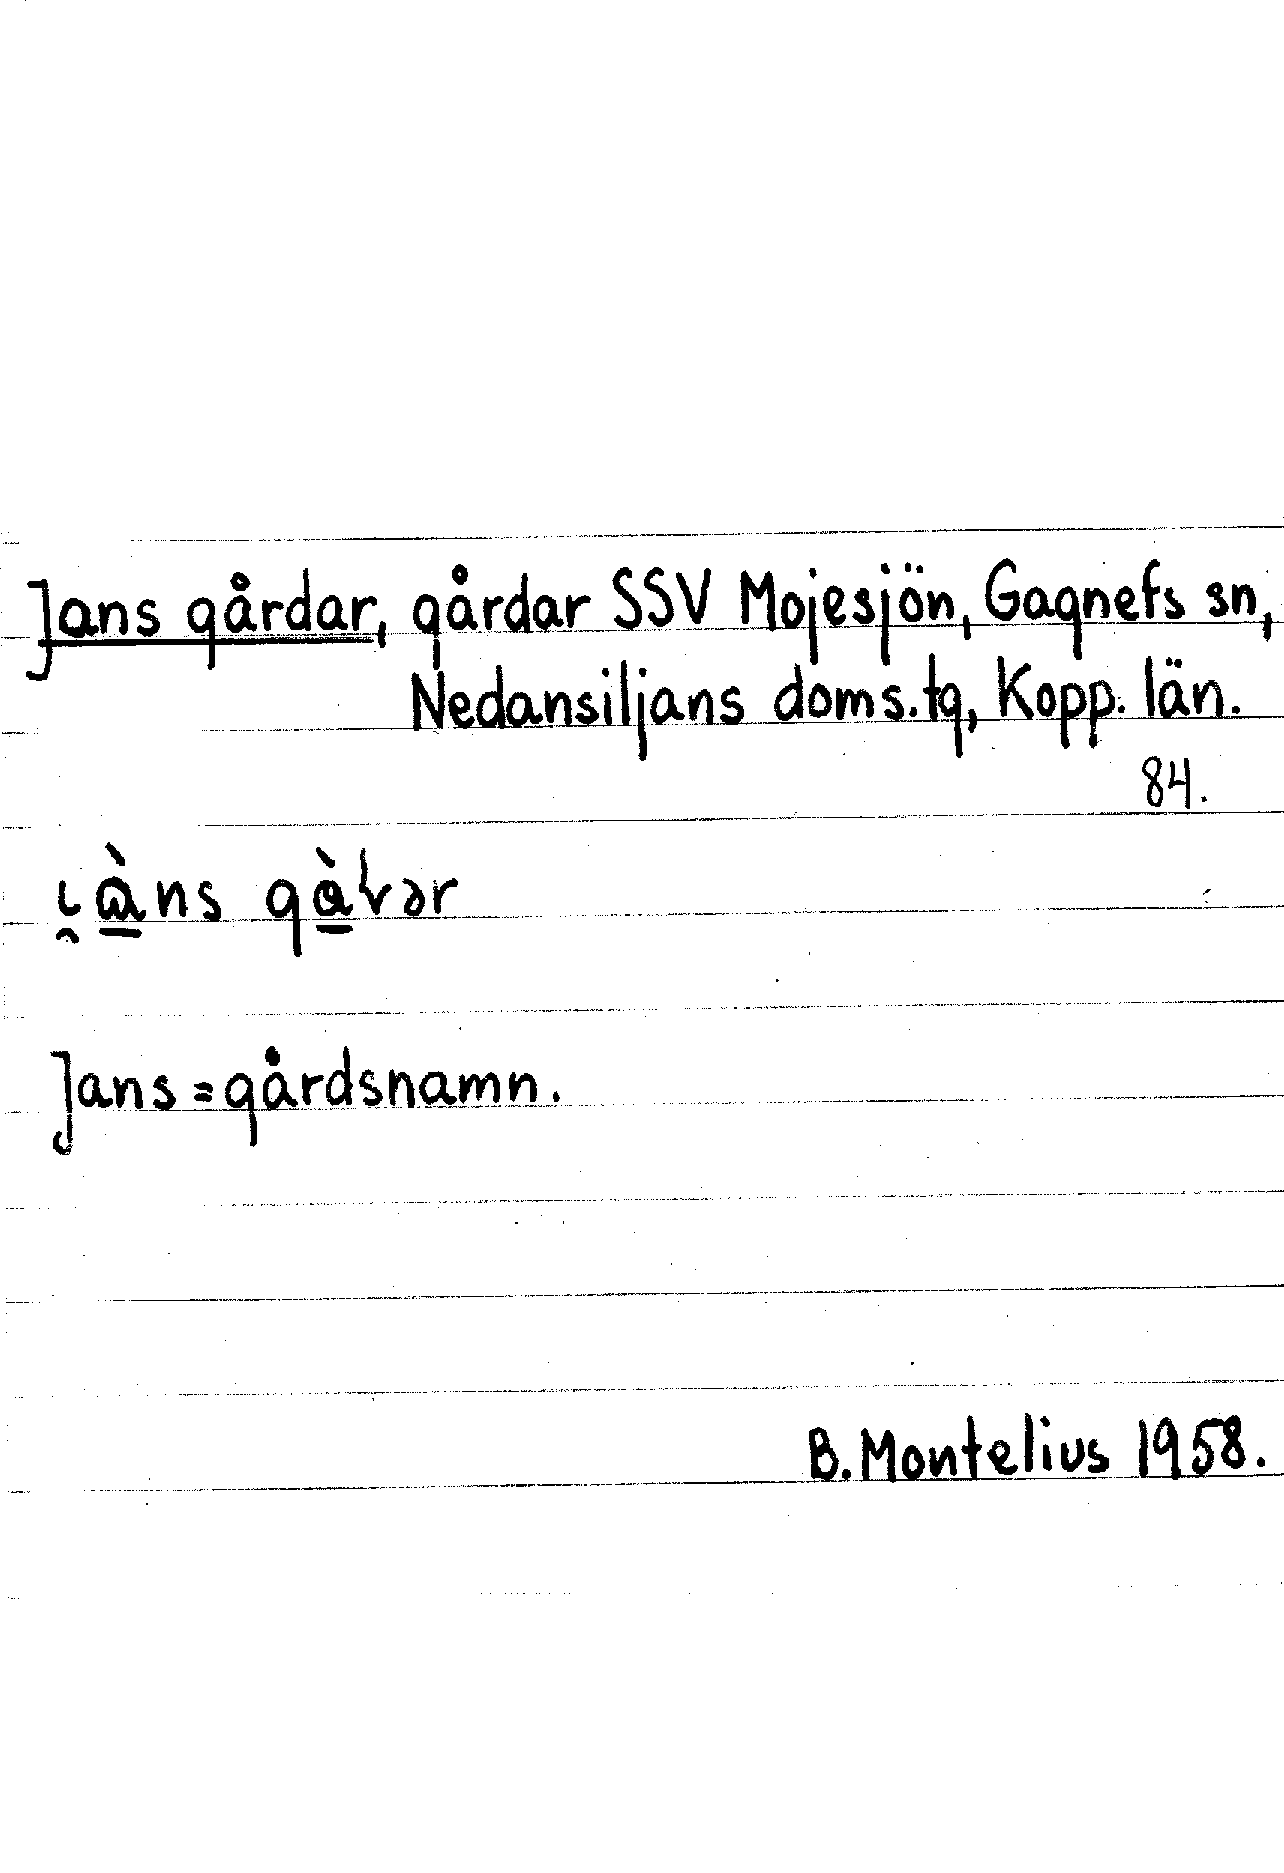 Jans gårdar, gårdar SSV Mojesjön, Gagnefs sn,
Nedansiljans doms.tg, Kopp. län.
84.
Jans = gårdsnamn.
B. Montelius 1958.